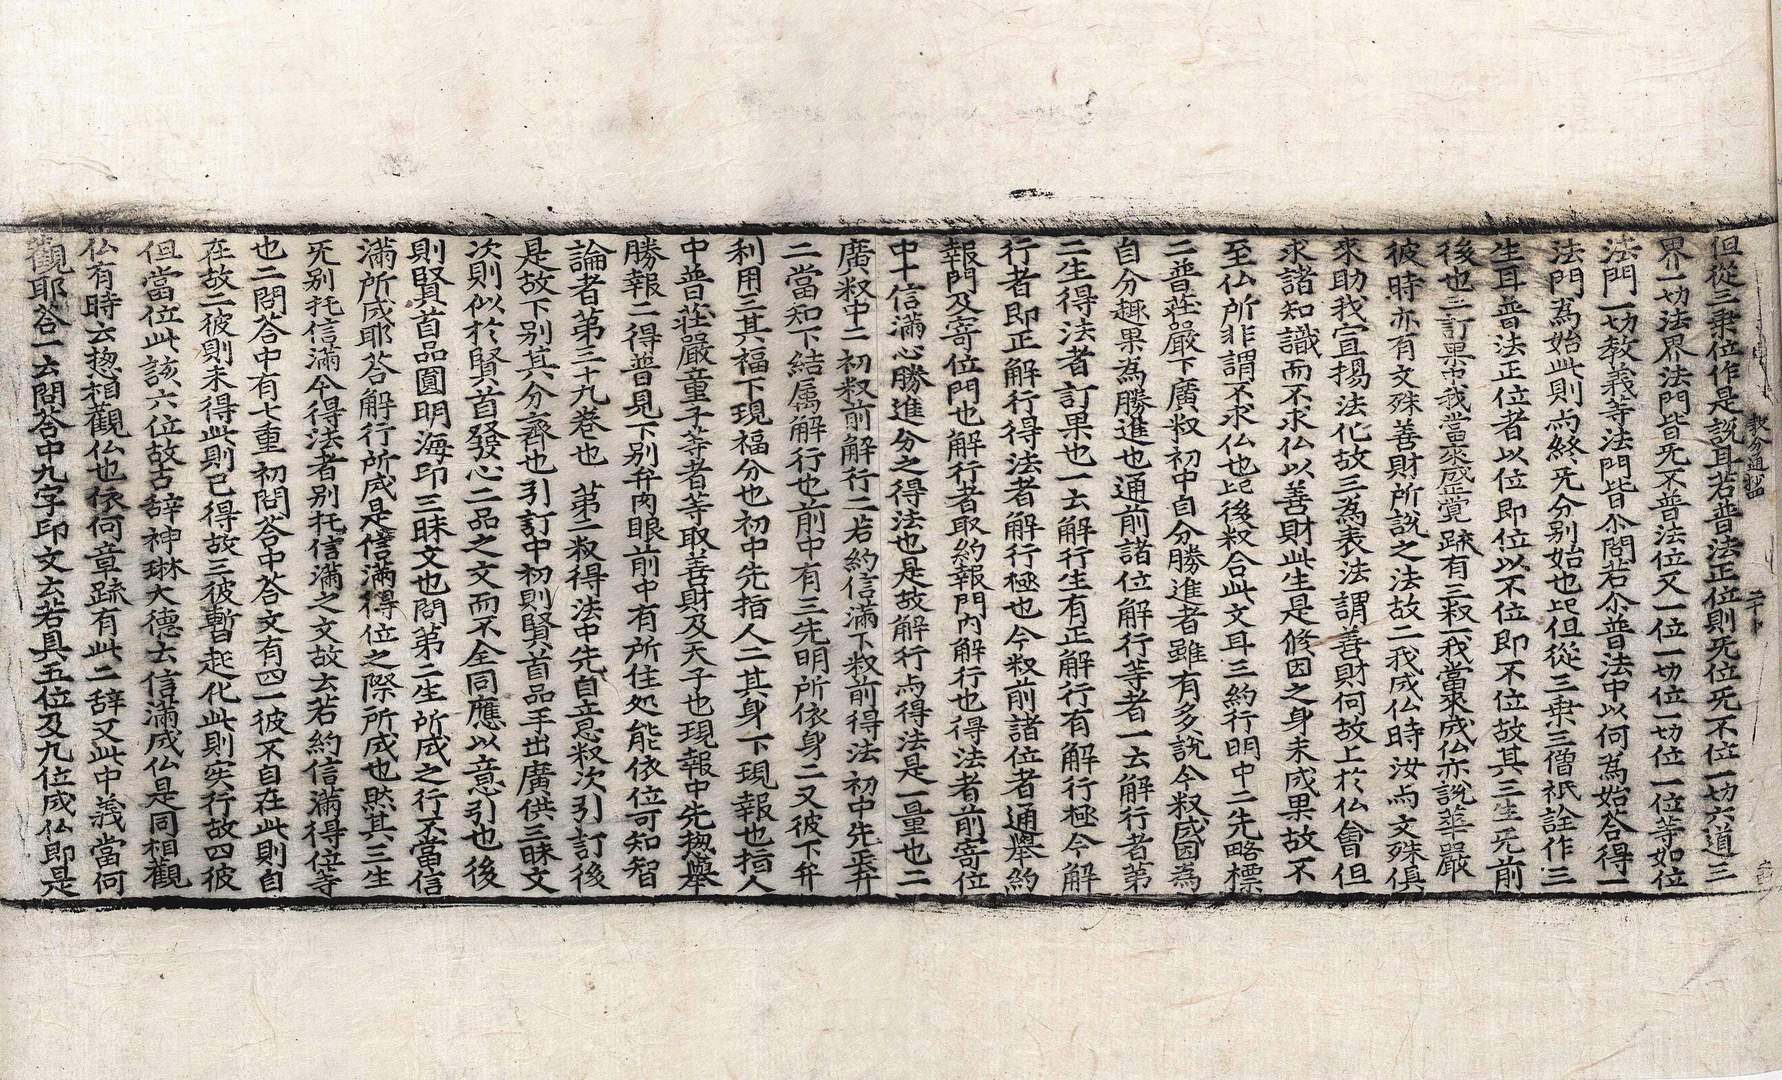 但從三乗位作是說耳若普法正位則旡位旡不位一切六道三
界一切法界法門皆旡不普法位又一位一切位一切位一位等如位
法門一切教義等法門皆尒問若尒普法中以何為始荅得一
法門為始此則為終旡分別始也是但從三乗三僧祇詮作三
生耳普法正位者以位即位以不位即不位故其三生旡前
後也三訂果中我當來盛覺䟽有三𥘉一我當來成仏亦說華嚴
彼時亦有文殊善財所說之法故二我成仏時汝与文殊俱
來助我宣揚法化故三為表法謂善財何故上於仏會但
求諸知識而不求仏以善財此生是修因之身未成果故不
至仏所非謂不求仏也是後釈合此文耳三約行明中二先略標
二普莊嚴下廣釈初中自分勝進者雖有多說今釈咸因為
自分趣果為勝進也通前諸位解行等者一云解行者第
二生得法者訂果也一云解行生有正解行有解行極今解
行者即正解行得法者解行極也今釈前諸位者通舉約
報門及寄位門也解行者取約報門內解行也得法者前寄位
中十信滿心勝進分之得法也是故解行与得法是一量也二
廣釈中二初釈前解行二若約信滿下釈前得法初中先正弁
二當知下結属解行也前中有三先明所依身二又彼下弁
利用三其福下現福分也初中先指人二其身下現報也指人
中普莊嚴童子等者等取善財及天子也現報中先惣舉
勝報二得普見下別弁肉眼前中有所住処能依位可知智
論者第三十九巻也 第二釈得法中先自立意釈次引訂後
是故下別其分齊也引訂中初則賢首品手出廣供三昧文
次則似於賢首發心二品之文而不全同應以意引也後
則賢首品圓明海印三昧文也問第二生所成之行不當信
滿所成耶荅解行所成是信滿得位之際所成也然其三生
旡別托信滿今得法者別托信滿之文故云若約信滿得位等
也二問荅中有七重初問荅中荅文有四一彼不自在此則自
在故二彼則未得此則已得故三彼暫起化此則实行故四彼
但當位此該六位故古辞神琳大德云信滿成仏是同相觀
仏有時云惣相觀仏也依何章䟽有此二辞又此中義當何
觀耶荅一云問荅中九字印文云若具五位及九位成仏即是